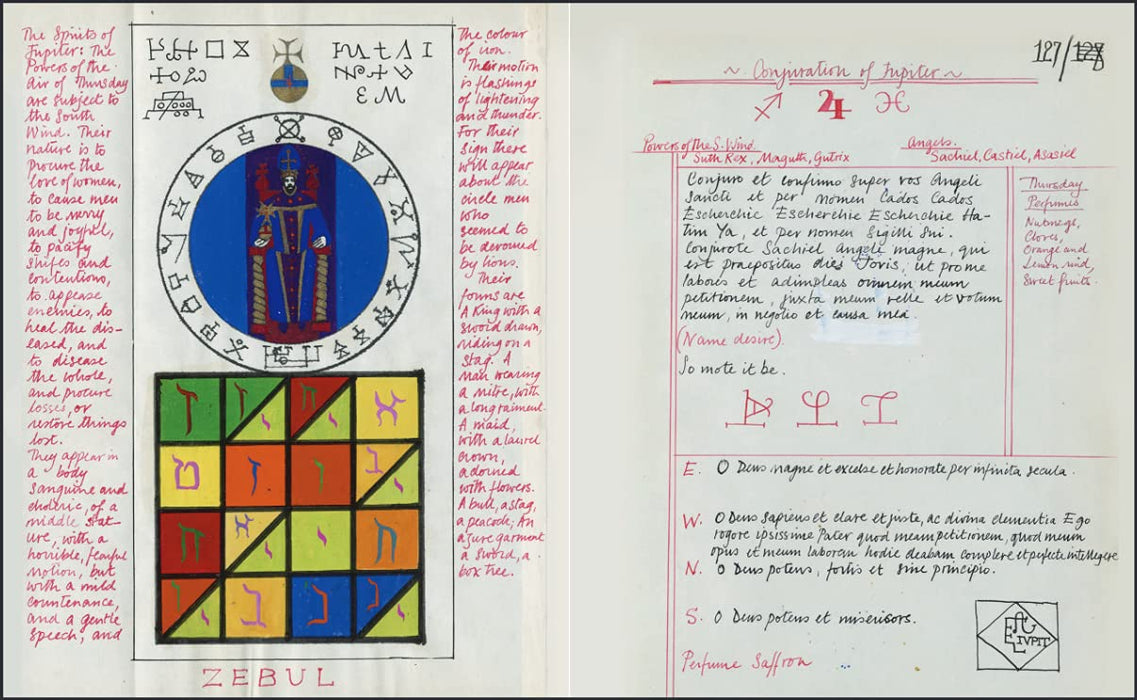 The Spirits of
Jupiter: The
Powers of the
Air of Thursday
are subject to
the South
Wind. Their
nature is to
procure the
love of women,
to cause men
to be merry
and joyful,
to pacify
strifes and
contentions,
to appease
enemies, to
heal the dis-
eased, and
to disease
the whole,
and procure
losses, or
restore things
lost.
They appear in
a body
sanguine and
choleric, of a
middle stat-
ure, with a
horrible, fearful
motion, but
with a mild
countenance,
and a gentle
speech, and
The colour
of iron.
Their motion
is flashings
of lightening
and thunder.
For their
sign there
will appear
about the
circle men
who
seemed to
be devoured
by lions.
Their
forms are
A King with a
sword drawn,
riding on a
stag. A
man wearing
a mitre, with
a long raiment.
A maid,
with a laurel
crown,
adorned
with flowers.
A bull, a stag,
a peacock; An
azure garment
a sword, a
box tree.
ד ד י ה י א
ט ז ו ב י
ה א י י ח
ו י ב ג ג י
ZEBUL
127/128
~ Conjuration of Jupiter ~
♐ ♃ ♓
Powers of the S. Wind.
Suth Rex, Maguth, Gutrix
Angels.
Sachiel, Castiel, Asasiel
Conjuro et confirmo super vos Angeli
Sancti et per nomen Cados Cados
Escherchie Escherchie Escherchie Ha-
tim Ya, et per nomen Sigilli Sui.
Conjurote Sachiel Angele magne, qui
est praepositus diei Jovis; ut pro me
labores et adimpleas omnem meum
petitionem, juxta meum velle et votum
meum, in negotio et causa mea.
(Name desire).
So mote it be.
Thursday
Perfumes
Nutmege,
Cloves,
Orange and
Lemon rind,
Sweet fruits.
E. O Deus magne et excelse et honorate per infinita secula.
W. O Deus sapiens et clare et juste, ac divina clementia Ego
rogore ipsissime Pater quod meam petitionem, quod meum
opus et meum laborem hodie deabam complere et perfecte intellegere
N. O Deus potens, fortis et sine principio.
S. O Deus potens et miserisors.
Perfume Saffron
IVPIT